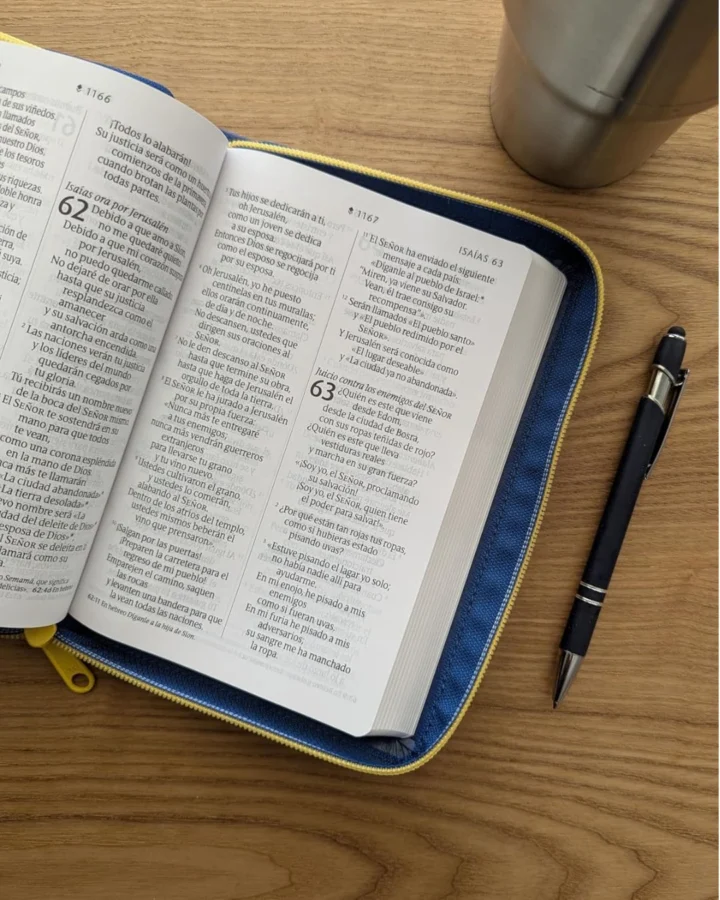 campos
de sus viñedos.
llamados
del SEÑOR,
nuestro Dios.
de los tesoros
riquezas.
doble honra
za y
ción de
erra,
suya.
sticia;
1166
¡Todos lo alabarán!
Su justicia será como un
comienzos de la
cuando brotan las
todas partes.
Isaías ora por Jerusalén
62 Debido a que amo a Sion,
no me quedaré
Debido a que mi corazón
por Jerusalén,
no puedo quedarme callado.
No dejaré de orar por ella
hasta que su justicia
resplandezca como el
amanecer
y su salvación arda como una
antorcha encendida.
2 Las naciones verán tu justicia
y los líderes del mundo
quedarán cegados por
tu gloria.
Tú recibirás un nombre nuevo
de la boca del SEÑOR mismo.
El SEÑOR te sostendrá en su
mano para que todos
te vean,
como una corona espléndida
en la mano de Dios.
ca más te llamarán
«La ciudad abandonada»
«La tierra desolada».
nombre será «La
dad del deleite de Dios»
esposa de Dios»
SEÑOR se deleita en
lamará como su
1167
ISAÍAS 63
5 Tus hijos se dedicarán a ti,
oh Jerusalén,
como un joven se dedica
a su esposa.
Entonces Dios se regocijará por ti
como el esposo se regocija
por su esposa.
6 Oh Jerusalén, yo he puesto
centinelas en tus murallas;
ellos orarán continuamente,
de día y de noche.
No descansen, ustedes que
dirigen sus oraciones al
SEÑOR.
7 No le den descanso al SEÑOR
hasta que termine su obra,
hasta que haga de Jerusalén el
orgullo de toda la tierra.
8 El SEÑOR le ha jurado a Jerusalén
por su propia fuerza:
«Nunca más te entregaré
a tus enemigos;
nunca más vendrán guerreros
extranjeros
para llevarse tu grano
y tu vino nuevo.
9 Ustedes cultivaron el grano,
y ustedes lo comerán,
alabando al SEÑOR.
Dentro de los atrios del templo,
ustedes mismos beberán el
vino que prensaron».
10 ¡Salgan por las puertas!
¡Preparen la carretera para el
regreso de mi pueblo!
Emparejen el camino, saquen
las rocas
y levanten una bandera para que
la vean todas las naciones.
62:11 En hebreo Díganle a la hija de Sion.
11 El SEÑOR ha enviado el siguiente
mensaje a cada país:
«Díganle al pueblo de Israel:*
"Miren, ya viene su Salvador.
Vean, él trae consigo su
recompensa"».
12 Serán llamados «El pueblo santo»
y «El pueblo redimido por el
SEÑOR».
Y Jerusalén será conocida como
«El lugar deseable»
y «La ciudad ya no abandonada».
Juicio contra los enemigos del SEÑOR
63 ¿Quién es este que viene
desde Edom,
desde la ciudad de Bosra,
con sus ropas teñidas de rojo?
¿Quién es este que lleva
vestiduras reales
y marcha en su gran fuerza?
«¡Soy yo, el SEÑOR, proclamando
su salvación!
¡Soy yo, el SEÑOR, quien tiene
el poder para salvar!».
2 ¿Por qué están tan rojas tus ropas,
como si hubieras estado
pisando uvas?
3 «Estuve pisando el lagar yo solo;
no había nadie allí para
ayudarme.
En mi enojo, he pisado a mis
enemigos
como si fueran uvas.
En mi furia he pisado a mis
adversarios;
su sangre me ha manchado
la ropa.